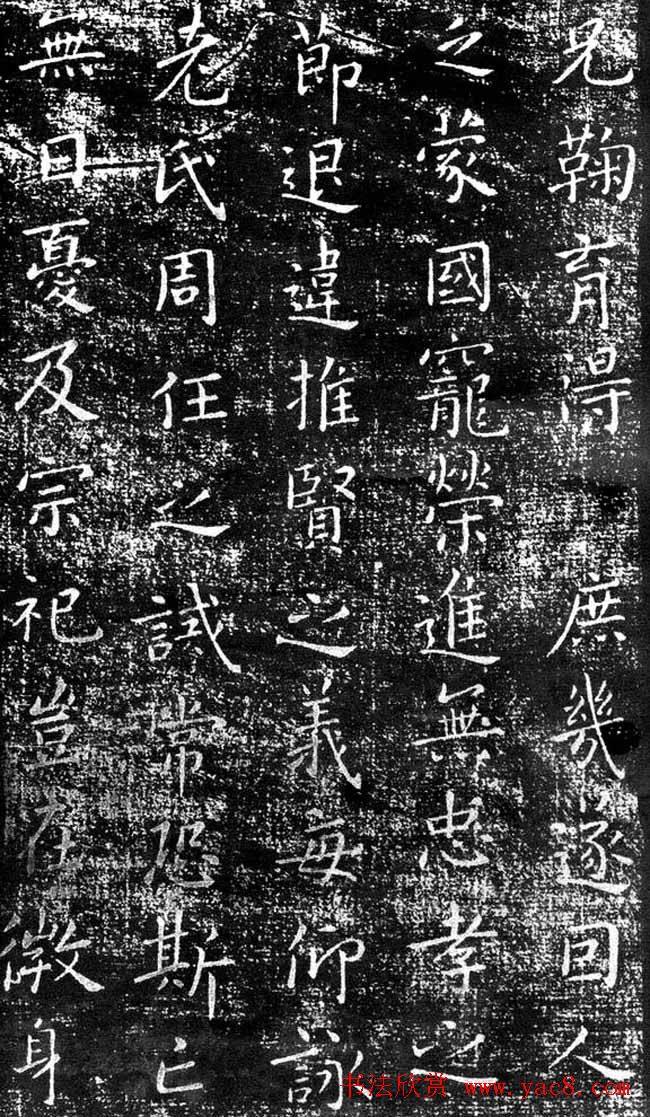 兄鞠育得庶幾遂因人
乏蒙國寵榮進無忠孝之
節退違推賢之義每仰詠
老氏周任之誡常恐斯亡
無日憂及宗祀豈在微身
书法欣赏 www.yac8.com